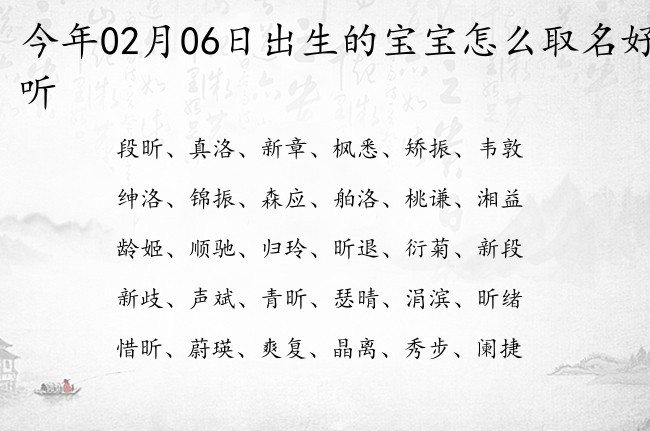 今年02月06日出生的宝宝怎么取名好
听
段昕、真洛、新章、枫悉、矫振、韦敦
绅洛、锦振、森应、舶洛、桃谦、湘益
龄姬、顺驰、归玲、昕退、衍菊、新段
新歧、声斌、青昕、瑟晴、涓滨、昕绪
惜昕、蔚瑛、爽复、晶离、秀步、阑捷